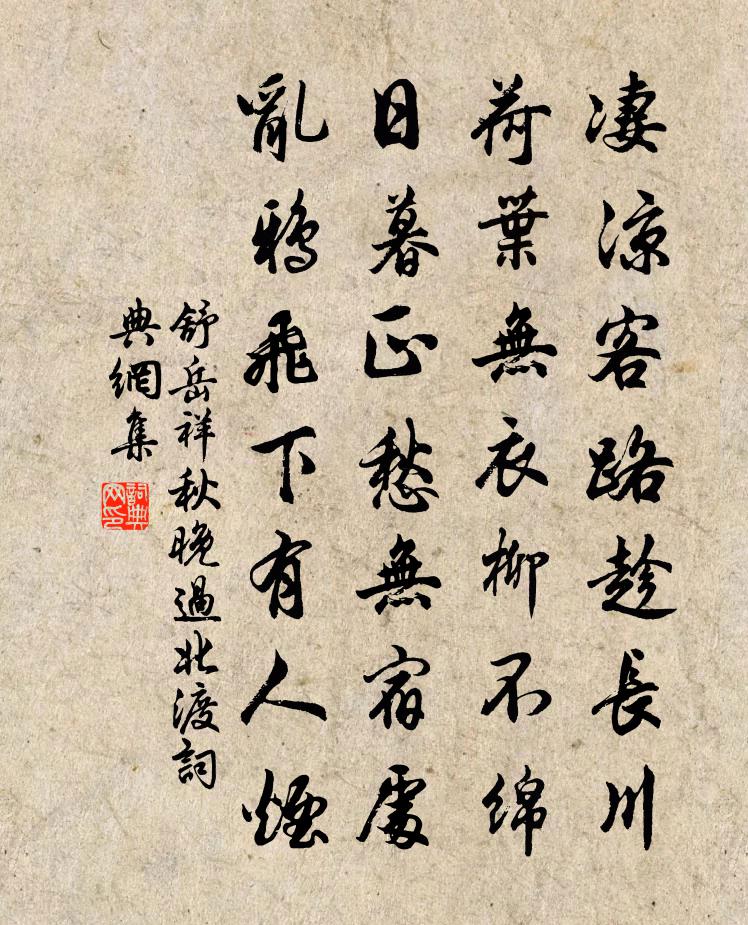 淒涼客路趁長川
荷葉無衣柳不綿
日暮正愁無宿處
亂鴉飛下有人煙
舒岳祥秋晚過北渡詞
典網集
詞典
网印